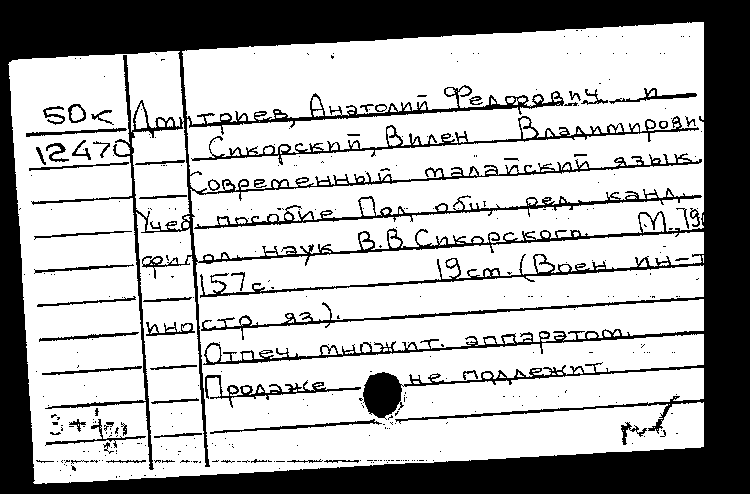 50к Дмитриев, Анатолий Федорович и
12470 Сикорский, Вилен Владимирович
Современный малайский язык.
Учеб. пособие Под общ. ред. канд.
филол. наук В.В. Сикорского. М.,
157с. 19см. (Воен. ин-т
иностр. яз.).
Отпеч. множит. аппаратом.
Продаже не подлежит.